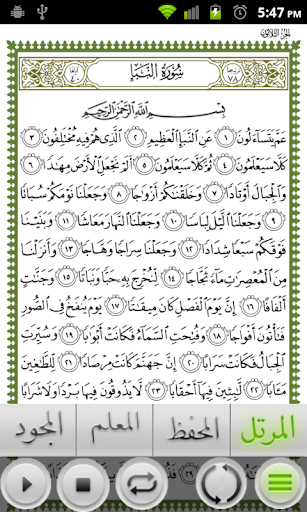 5:47 PM
الجزء الثلاثون
ترتيبها ٧٨ سُورَةُ النَّبَإِ آياتها ٤٠
بِسْمِ اللَّهِ الرَّحْمَٰنِ الرَّحِيمِ
عَمَّ يَتَسَآءَلُونَ ١ عَنِ ٱلنَّبَإِ ٱلْعَظِيمِ ٢ ٱلَّذِى هُمْ فِيهِ مُخْتَلِفُونَ ٣
كَلَّا سَيَعْلَمُونَ ٤ ثُمَّ كَلَّا سَيَعْلَمُونَ ٥ أَلَمْ نَجْعَلِ ٱلْأَرْضَ مِهَٰدًا ٦
وَٱلْجِبَالَ أَوْتَادًا ٧ وَخَلَقْنَٰكُمْ أَزْوَٰجًا ٨ وَجَعَلْنَا نَوْمَكُمْ سُبَاتًا
٩ وَجَعَلْنَا ٱلَّيْلَ لِبَاسًا ١٠ وَجَعَلْنَا ٱلنَّهَارَ مَعَاشًا ١١ وَبَنَيْنَا
فَوْقَكُمْ سَبْعًا شِدَادًا ١٢ وَجَعَلْنَا سِرَاجًا وَهَّاجًا ١٣ وَأَنزَلْنَا
مِنَ ٱلْمُعْصِرَٰتِ مَآءً ثَجَّاجًا ١٤ لِّنُخْرِجَ بِهِۦ حَبًّا وَنَبَاتًا ١٥ وَجَنَّٰتٍ
أَلْفَافًا ١٦ إِنَّ يَوْمَ ٱلْفَصْلِ كَانَ مِيقَٰتًا ١٧ يَوْمَ يُنفَخُ فِى ٱلصُّورِ
فَتَأْتُونَ أَفْوَاجًا ١٨ وَفُتِحَتِ ٱلسَّمَآءُ فَكَانَتْ أَبْوَٰبًا ١٩ وَسُيِّرَتِ
ٱلْجِبَالُ فَكَانَتْ سَرَابًا ٢٠ إِنَّ جَهَنَّمَ كَانَتْ مِرْصَادًا ٢١ لِّلطَّٰغِينَ
مَـَٔابًا ٢٢ لَّٰبِثِينَ فِيهَآ أَحْقَابًا ٢٣ لَّا يَذُوقُونَ فِيهَا بَرْدًا وَلَا شَرَابًا
المرتل المحفظ المعلم المجود